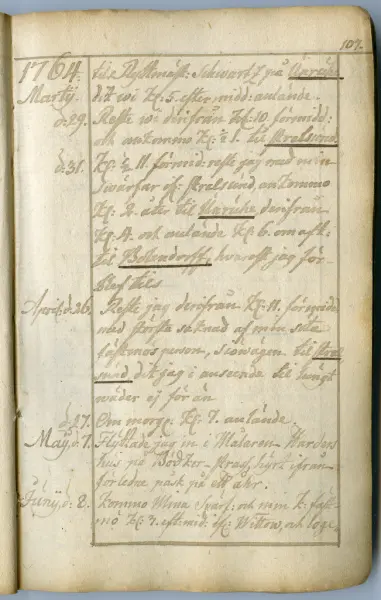 107.
1764. till Ryttmäst: Schwartz på Unruhe
Martij. dit wi Kl: 5. efter midd: anlände.
d: 29. Reste wi derifrån Kl: 10. förmidd:
och ankommo Kl: ½ 1. til Stralsund.
d: 31. Kl: ½ 11. förmid: reste jag med min
Swärfar öf: Stralsund, ankommo
Kl: 2. åter til Unruhe, derifrån
Kl: 4. och anlände Kl: 6. om aft:
til Bohendorff, hwarest jag för-
blef tils
April. d: 26. Reste jag derifrån Kl: 11. förmidd:
med största saknad af min
fästmös person, til Stral
sund, dit jag i anseende til
wäder ej för än
d: 27. Om morg: Kl: 7. anlände.
Maij. d: 1. Flyttade jag in i Målaren
hus på Bödker-strat, hyrt ifrån
förledne påsk på ett åhr.
Junij. d: 8. Kommo Mina Swärf: och min K: fäst-
mö Kl: 3. eft: mid: öf: Wittow, och